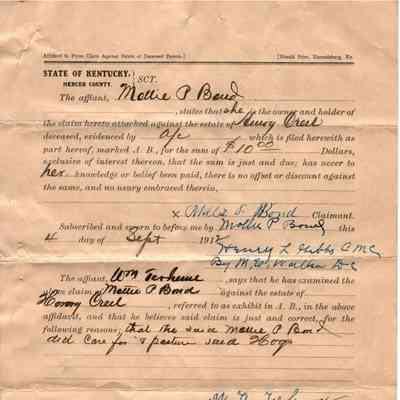 Affidavit to Prove Claim Against Estate of Deceased Person.] [Herald Print, Harrodsburg, Ky.
STATE OF KENTUCKY, } SCT.
MERCER COUNTY.
The affiant, Mollie P Bond
, states that she is the owner and holder of
the claim hereto attached against the estate of Henry Creel
deceased, evidenced by a/c which is filed herewith as
part hereof, marked A. B., for the sum of $10.00 Dollars,
exclusive of interest thereon, that the sum is just and due; has never to
her knowledge or belief been paid, there is no offset or discount against
the same, and no usury embraced therein.
x Mollie P Bond Claimant.
Subscribed and sworn to before me by Mollie P Bond this
4 day of Sept 191
Henry L C M C
By D C
The affiant, Wm Terhune , says that he has examined the
above claim of Mollie P Bond against the estate of
Henry Creel , referred to as exhibit in A. B., in the above
affidavit, and that he believes said claim is just and correct, for the
following reasons; that the said Mollie P Bond
did care for & pasture said Hogs